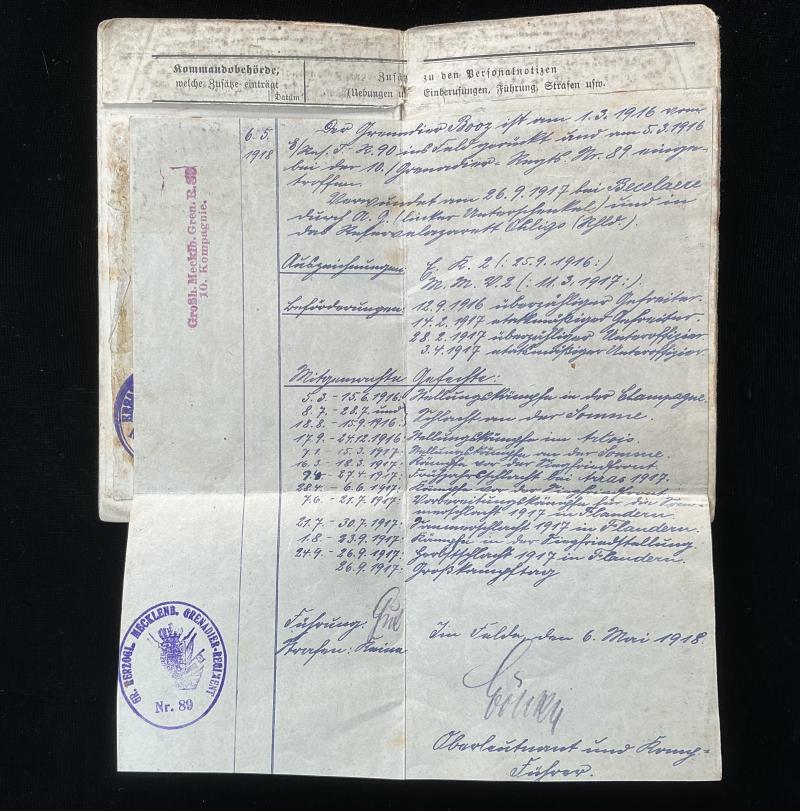 Kommandobehörde,
welche Zusätze einträgt
Datum
Zusä zu den Personalnotizen
(Uebungen u Einberufungen, Führung, Strafen usw.
Großh. Mecklb. Gren. R. 89
10. Kompagnie.
6.5.
1918
Der Grenadier Booz ist am 1.3.1916 vom
E/Res. J. R. 90 ins Feld gerückt und am 5.3.1916
bei der 10./Grenadier-Regts. Nr. 89 einge-
troffen.
Verwundet am 26.9.1917 bei Becelaere
durch A. G. (linker Unterschenkel) und in
das Reservelazarett Ohligs (Rhld.).
Auszeichnungen E. K. 2 (: 25.9.1916 :)
M. M. V. 2 (: 11.3.1917 :)
Beförderungen 12.9.1916 überzähliger Gefreiter.
14.2.1917 etatmäßiger Gefreiter.
28.2.1917 überzähliger Unteroffizier
3.4.1917 etatmäßiger Unteroffizier.
Mitgemachte Gefechte:
5.3. - 15.6.1916 Stellungskämpfe in der Champagne.
8.7. - 28.7. und
18.8. - 15.9.1916: Schlacht an der Somme.
17.9. - 24.12.1916 Stellungskämpfe im Artois.
7.1. - 15.3.1917: Stellungskämpfe an der Somme.
16.3. - 18.3.1917: Kämpfe vor der Siegfriedfront.
- 27.4.1917: Frühjahrsschlacht bei Arras 1917.
28.4. - 6.6.1917: Kämpfe vor der Siegfriedfront
7.6. - 21.7.1917: Vorbereitungskämpfe für die Som-
merschlacht 1917 in Flandern.
21.7. - 30.7.1917: Sommerschlacht 1917 in Flandern.
1.8. - 23.9.1917: Kämpfe in der Siegfriedstellung.
24.9. - 26.9.1917: Herbstschlacht 1917 in Flandern.
26.9.1917: Großkampftag
Führung: Gut
Strafen: Keine
Im Felde, den 6. Mai 1918.
Oberleutnant und Komp.-
Führer.
GR. HERZOGL. MECKLENB. GRENADIER-REGIMENT
Nr. 89